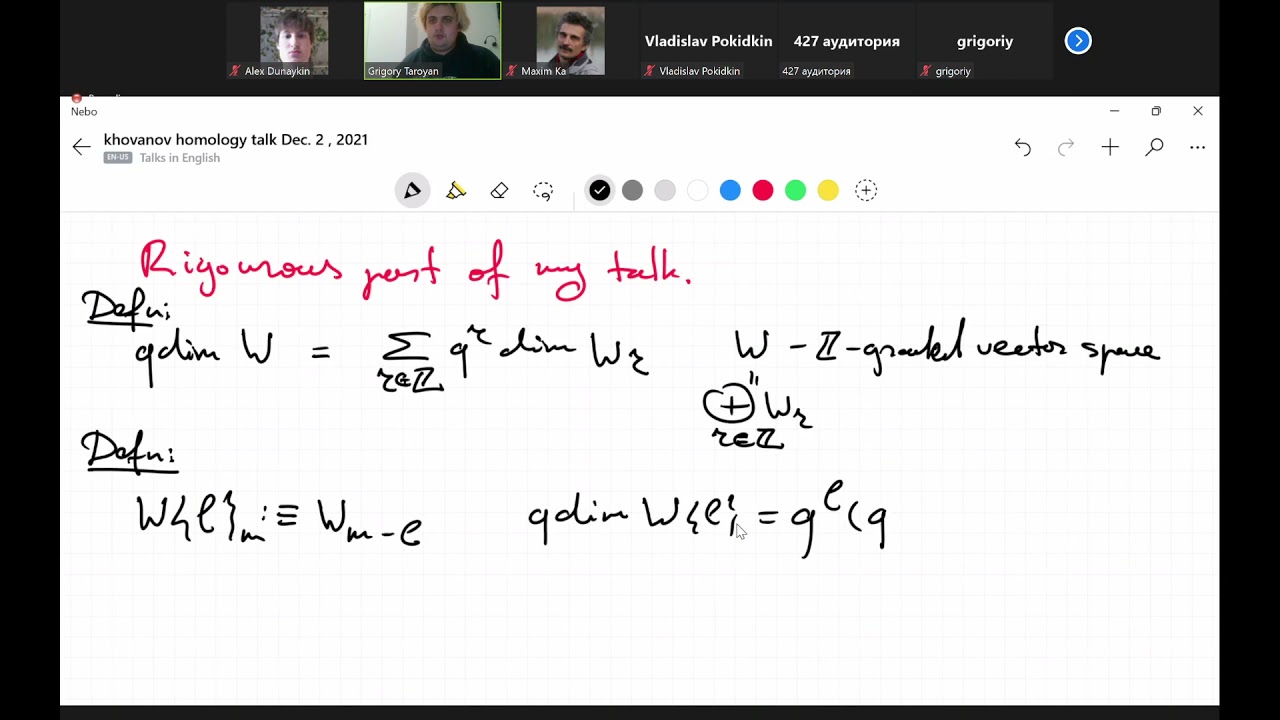 Vladislav Pokidkin
427 аудитория
grigoriy
Alex Dunaykin
Grigory Taroyan
Maxim Ka
Vladislav Pokidkin
427 аудитория
grigoriy
Nebo
khovanov homology talk Dec. 2 , 2021
EN-US Talks in English
Rigourous part of my talk.
Defn:
qdim W = ∑ q^r dim W_r W - ℤ-graded vector space
r∈ℤ
" ⊕ W_r
r∈ℤ
Defn:
W{l}_m :≡ W_{m-l} qdim W{l} = q^l (q